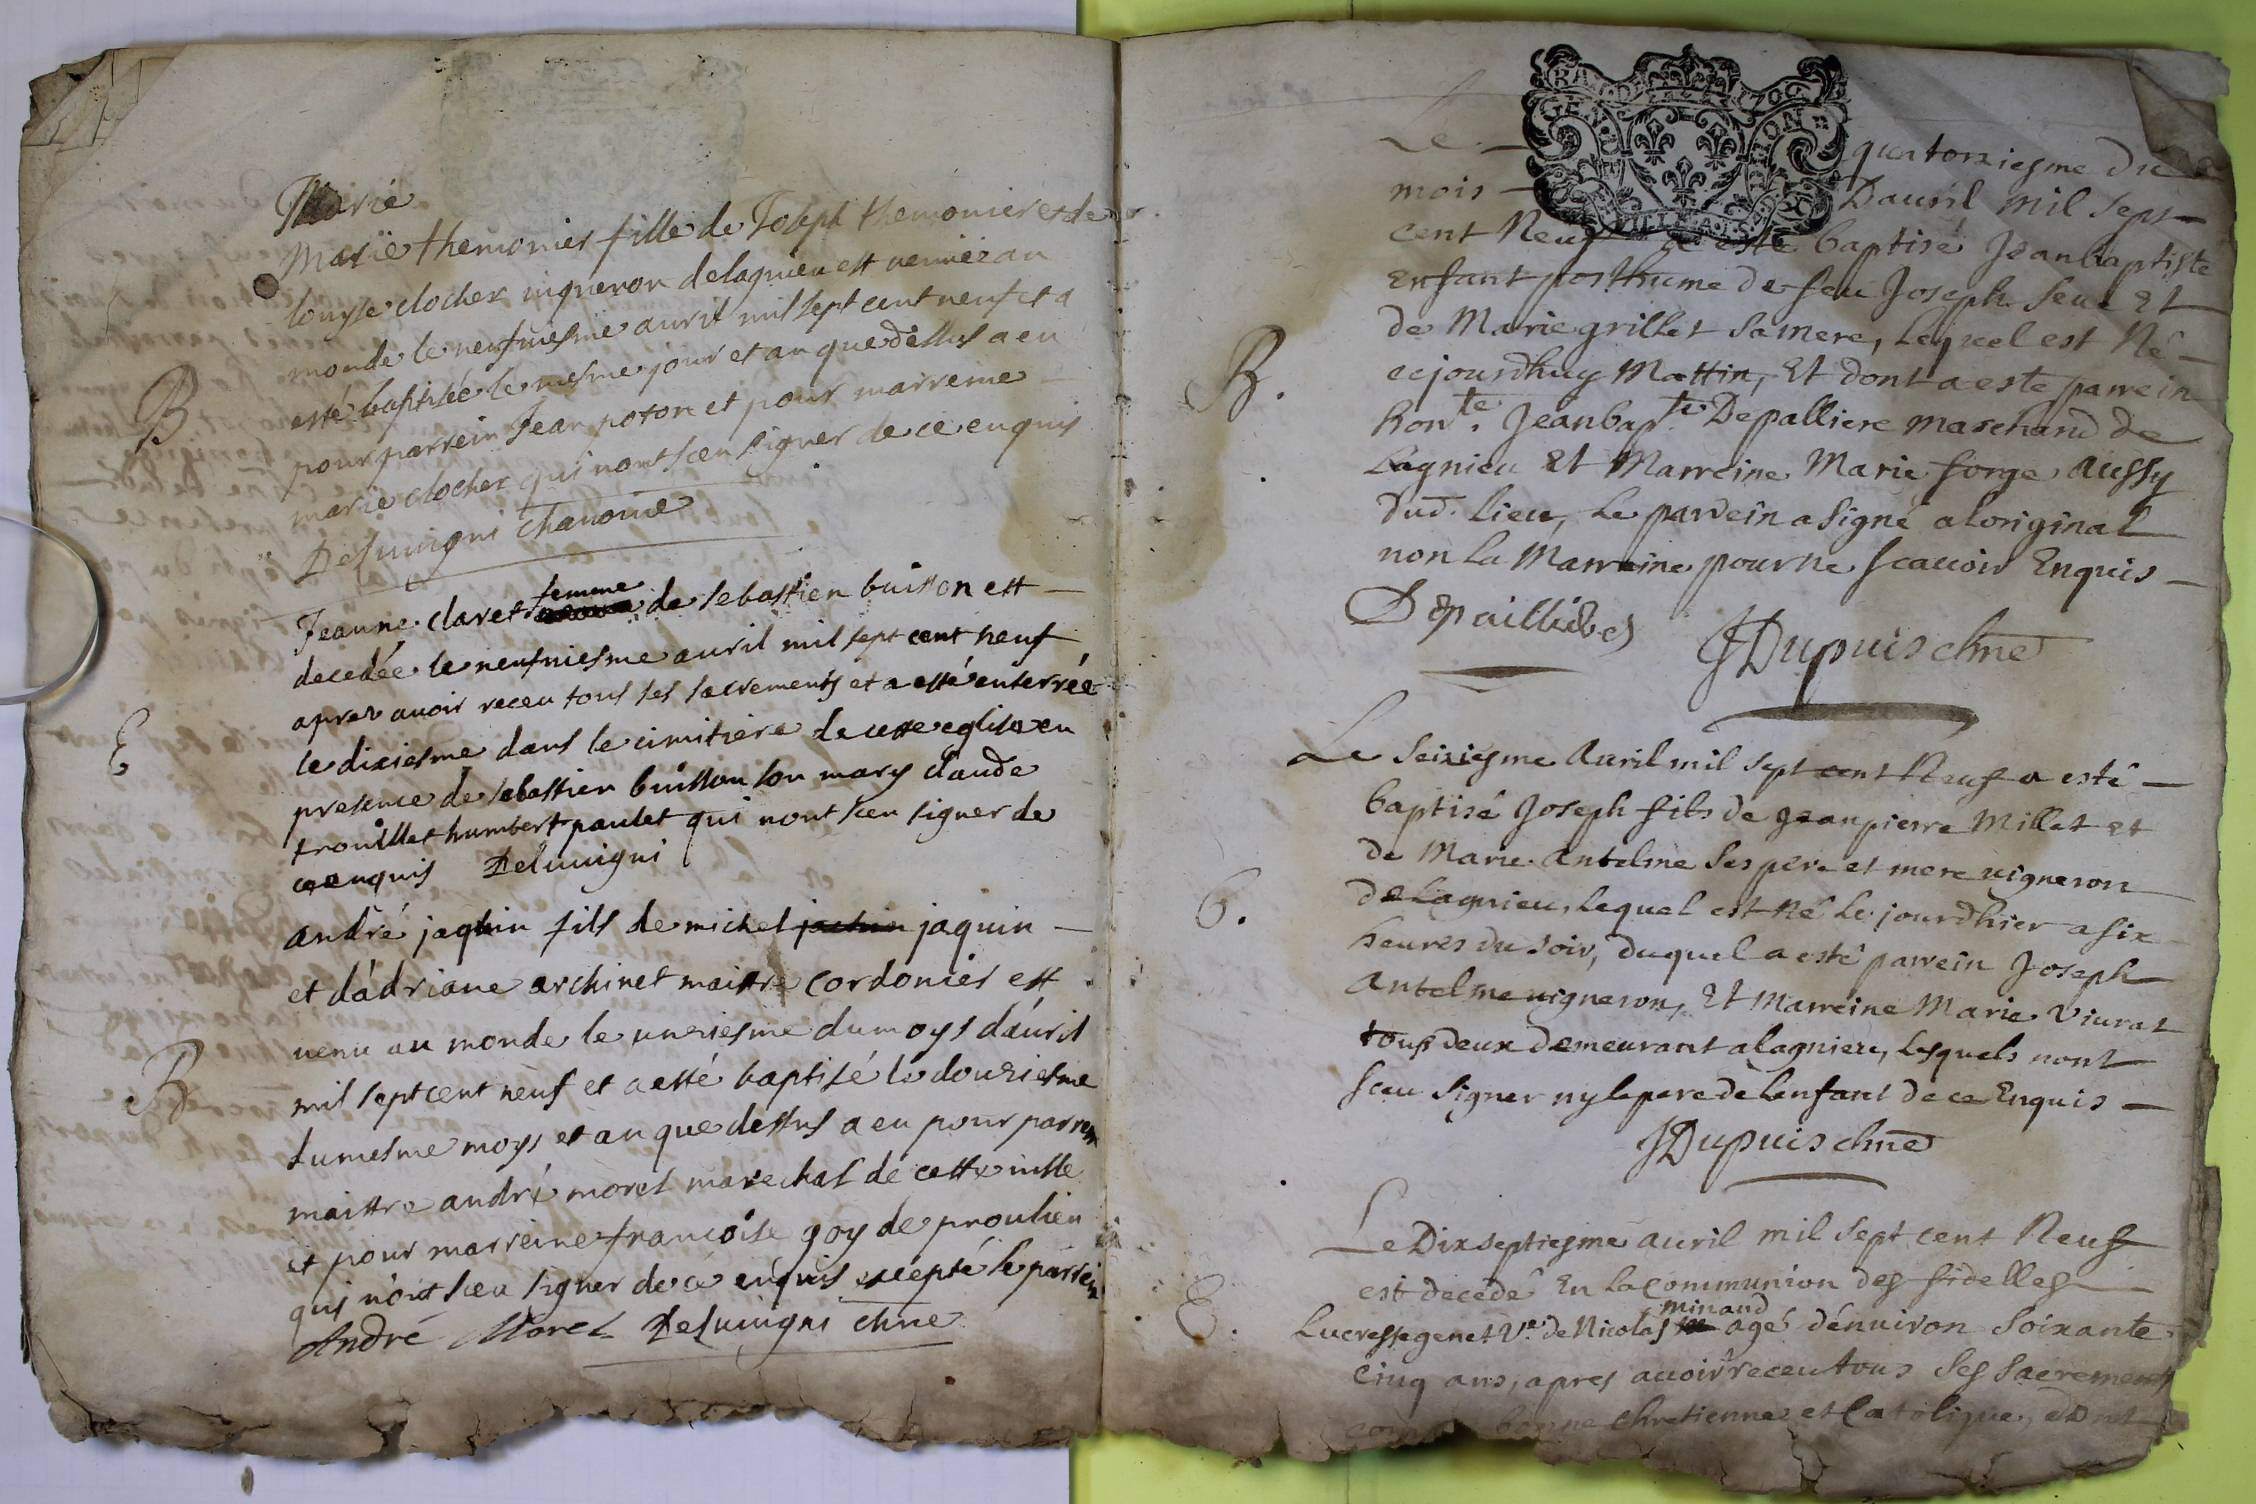 Marie
B
Marie themonier fille de Joseph themonier et de
louyse clocher vigneron de lagnieu est venüe au
monde le neufviesme avril mil sept cent neuf et a
esté baptisée le mesme jour et an que dessus a eu
pour parrein Jean poton et pour marreine
marie clocher qui n'ont sceu signer de ce enquis
Deluvigni chanoine
E
femme
Jeanne claret de sebastien buisson est
decedée le neufviesme avril mil sept cent neuf
apres avoir receu tous ses sacrements et a esté enterrée
le dixiesme dans le cimitiere de cette eglise en
presence de sebastien buisson son mary claude
trouillet humbert paulet qui n'ont sceu signer de
ce enquis Deluvigni
B
andré jaquin fils de michel jachin jaquin
et d'adriane archinet maittre cordonier est
venu au monde le unziesme du moys d'avril
mil sept cent neuf et a esté baptisé le douziesme
du mesme moys et an que dessus a eu pour parrein
maittre andré morel marechal de cette ville
et pour marreine françoise goy de proulieu
qui n'ont sceu signer de ce enquis excepté le parrein
André Morel Deluvigni chne
GEN
Le quatorziesme du
mois D'auril mil sept
cent Neuf a esté baptisé Jeanbaptiste
Enfant posthume de feu Joseph Seue Et
de Marie grillet sa mere, Lequel est Né
B.
cejourdhuy Mattin, Et dont a esté parrein
hon.te Jeanbap.te Depalliere marchand de
Lagnieu Et Marreine Marie forge, aussy
dud. lieu, Le parrein a signé a loriginal
non La Marreine pour ne scauoir Enquis
Depaillieres JDupuis chne
Le seiziesme Auril mil sept cent Neuf a esté
baptisé Joseph fils de Jeanpierre Millet et
de Marie Antelme ses pere et mere uigneron
6.
de Lagnieu, Lequel est Né Le jourdhier a six
heures du soir, duquel a esté parrein Joseph
Antelme uigneron, Et Marreine Marie Viurat
tous deux demeurant a lagnieu, Lesquels nont
sceu signer ny le pere de lenfant de ce Enquis
JDupuis chne
Le Dixseptiesme auril mil sept cent Neuf
est decedé En la communion des fidelles
minand
E.
Lucresse genet V.e de Nicolas agé dénuiron soixante
cinq ans, apres auoir receu tous ses sacrements
bonne chretienne et Catolique, dont